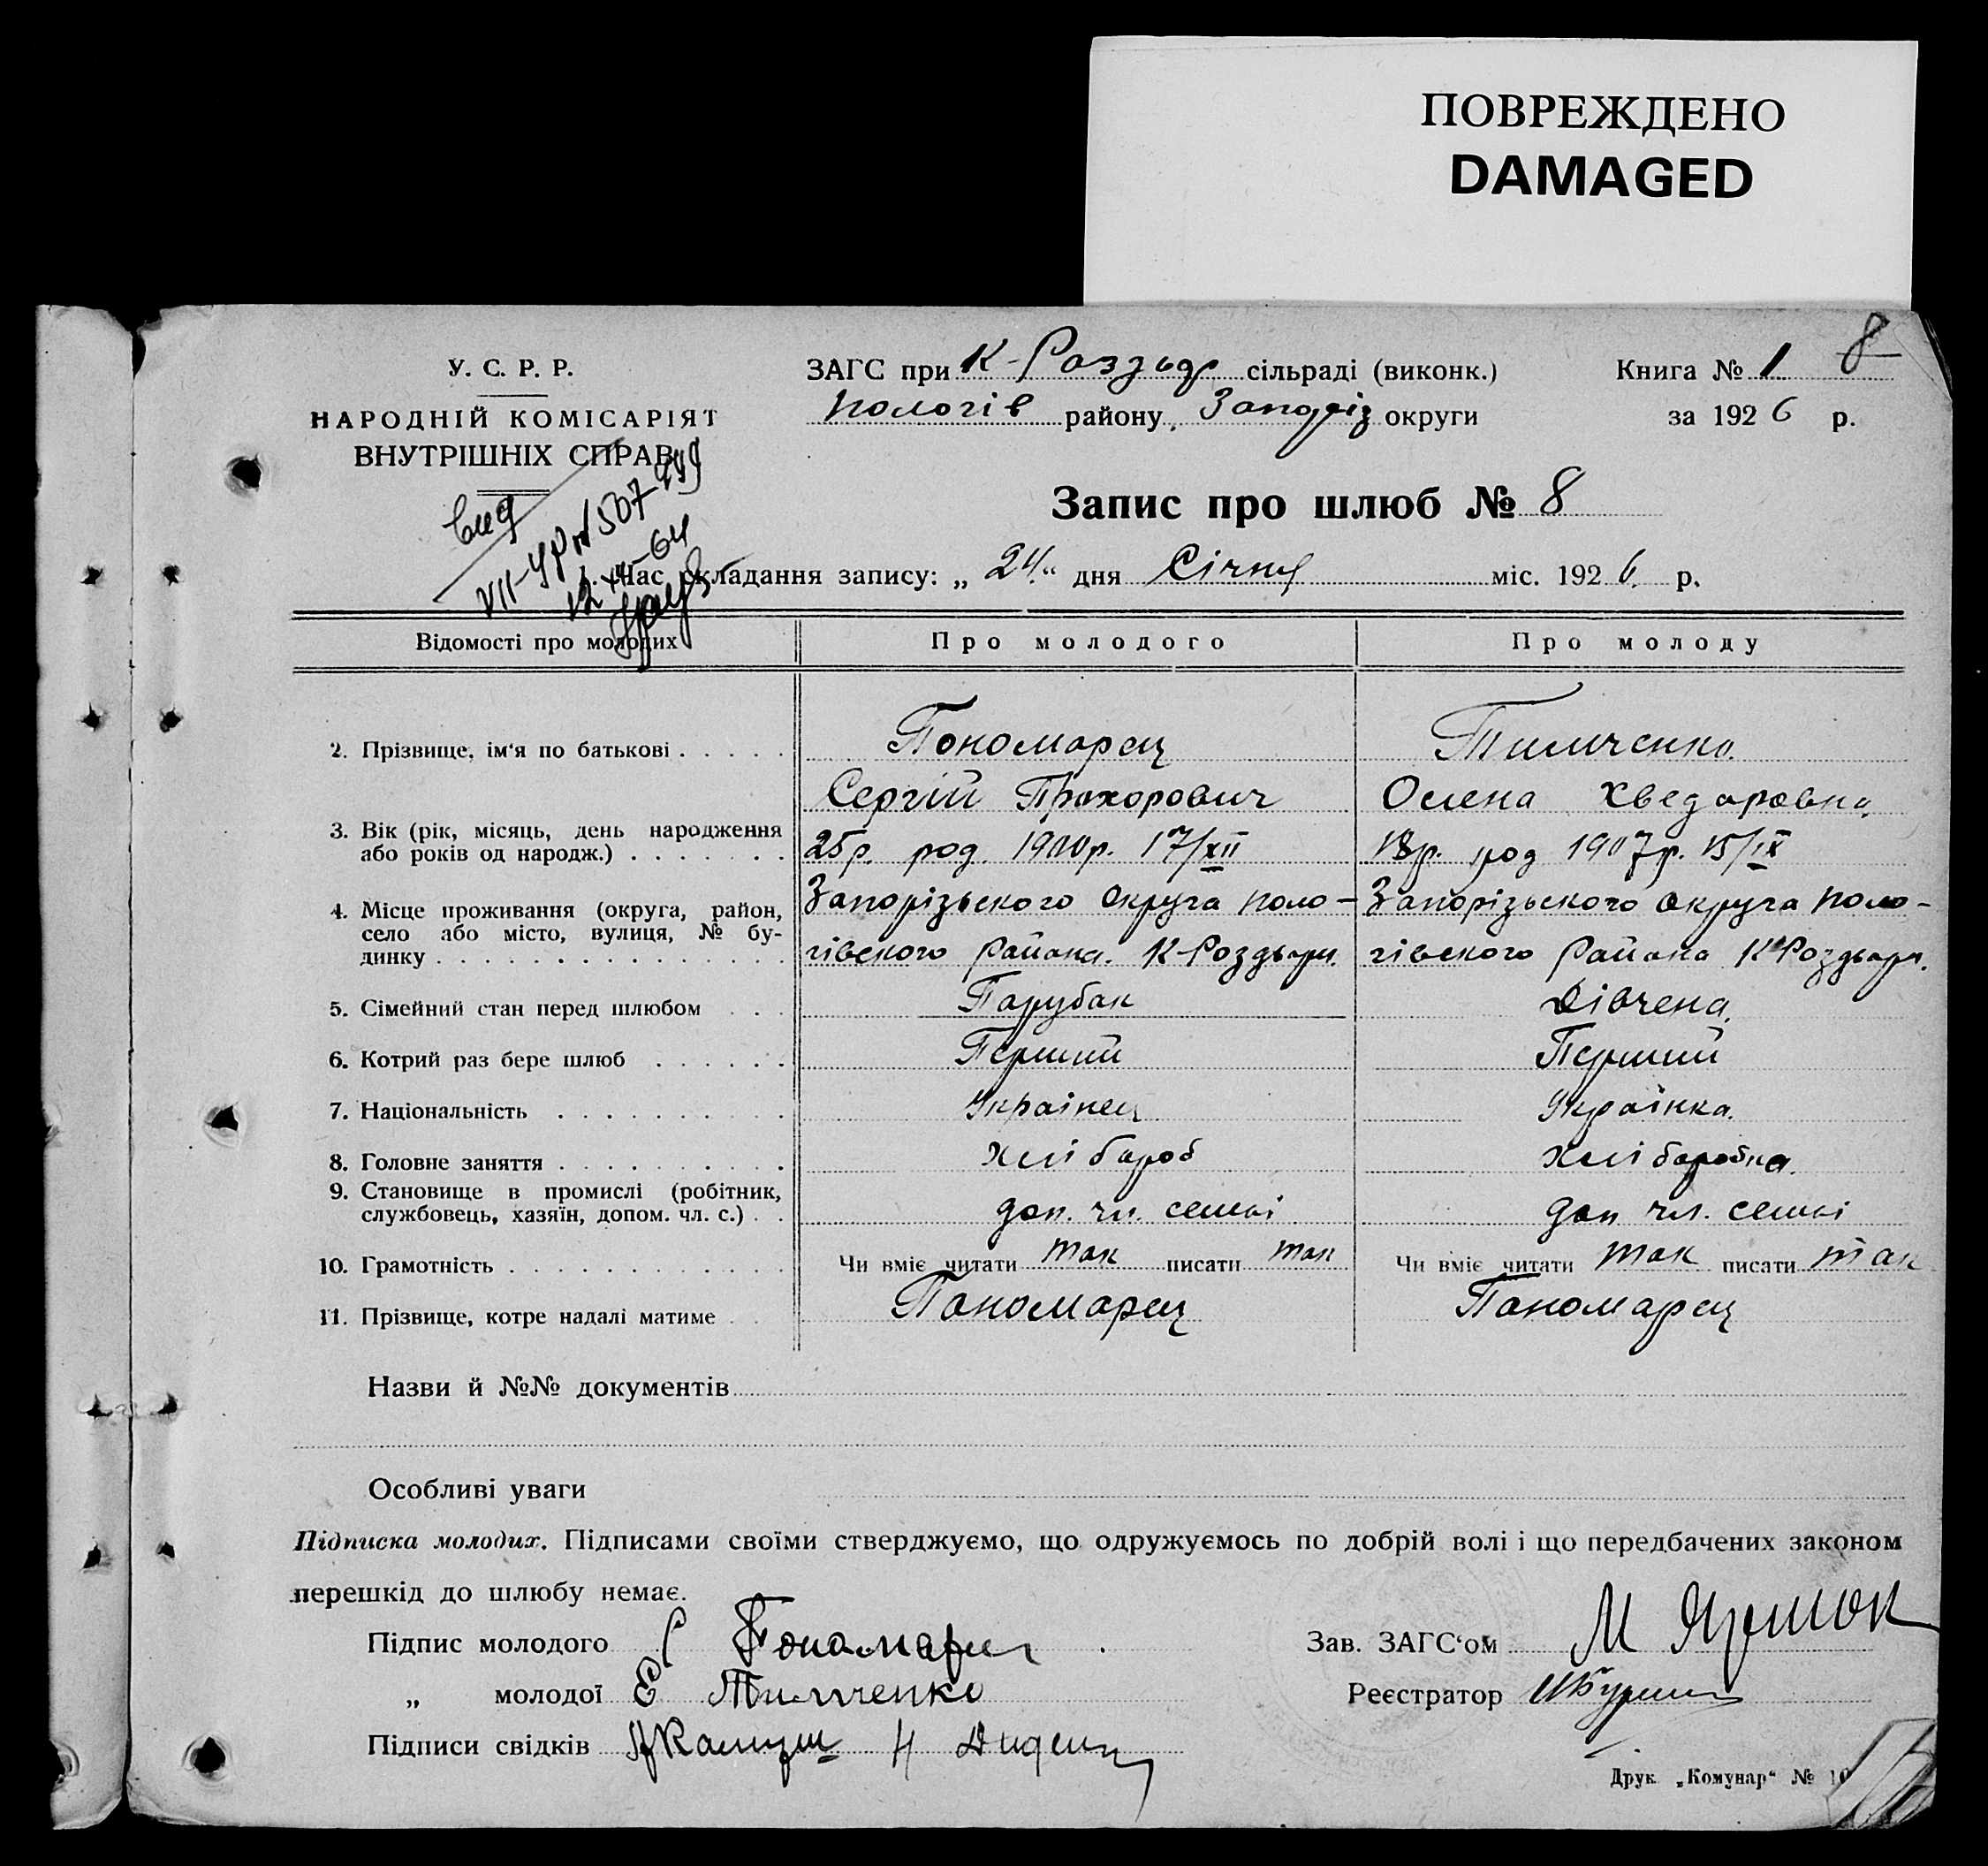 ПОВРЕЖДЕНО
DAMAGED
У. С. Р. Р.
НАРОДНІЙ КОМІСАРІЯТ
ВНУТРІШНІХ СПРАВ
ЗАГС при К-Роззьдр сільраді (виконк.)
Пологів району, Запоріз округи
Книга № 1 8
за 1926 р.
Запис про шлюб № 8
1. Час складання запису: „ 24 “ дня Січня міс. 1926 р.
VII-УР № 507499
12 XII-64
Відомості про молодих
Про молодого
Про молоду
2. Прізвище, ім'я по батькові
Пономарец
Тимченко
Сергій Прохорович
Олена Хведаровна
3. Вік (рік, місяць, день народження
або років од народж.)
25р. род. 1900р. 17/XII
18р. род 1907р. 15/IX
4. Місце проживання (округа, район,
село або місто, вулиця, № бу-
динку
Запорізьского Округа Поло-
гівского Района. К-Роздори.
Запорізьского Округа Поло-
гівского Района К-Роздори.
5. Сімейний стан перед шлюбом
Парубак
Дівчена
6. Котрий раз бере шлюб
Перший
Перший
7. Національність
Украінец
Украінка.
8. Головне заняття
Хлібароб
Хлібаробка.
9. Становище в промислі (робітник,
службовець, хазяїн, допом. чл. с.)
доп. чл. семьі
доп чл. семьі
10. Грамотність
Чи вміє читати так писати так
Чи вміє читати так писати так
11. Прізвище, котре надалі матиме
Паномарец
Паномарец
Назви й №№ документів
Особливі уваги
Підписка молодих. Підписами своїми стверджуємо, що одружуємось по добрій волі і що передбачених законом
перешкід до шлюбу немає.
Підпис молодого С Пономарец
„ молодої Е Тимченко
Підписи свідків
Зав. ЗАГС‘ом М
Реєстратор
Друк „Комунар“ № 10